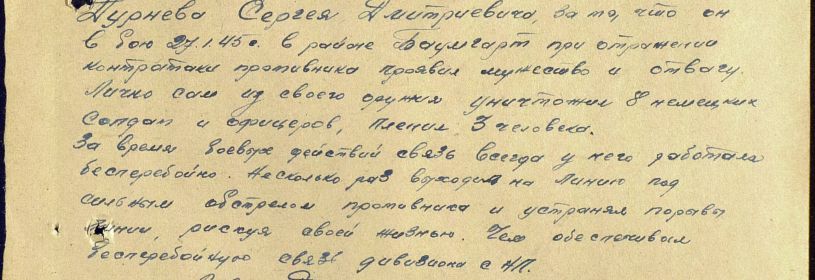 Пурнева Сергея Дмитриевича, за то, что он
в бою 27.1.45 г. в районе Баумгарт при отражении
контратаки противника проявил мужество и отвагу.
Лично сам из своего оружия уничтожил 8 немецких
солдат и офицеров, пленил 3 человека.
За время боевых действий связь всегда у него работала
бесперебойно. Несколько раз выходил на линию под
сильным обстрелом противника и устранял порывы
линии, рискуя своей жизнью. Чем обеспечивал
бесперебойную связь дивизиона с НП.